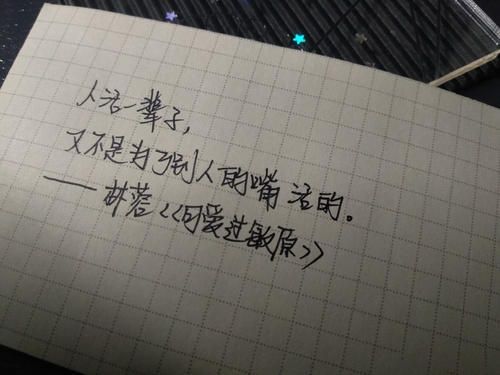 人活一辈子，
又不是为了别人的嘴活的。
——稚莟《可爱过敏原》